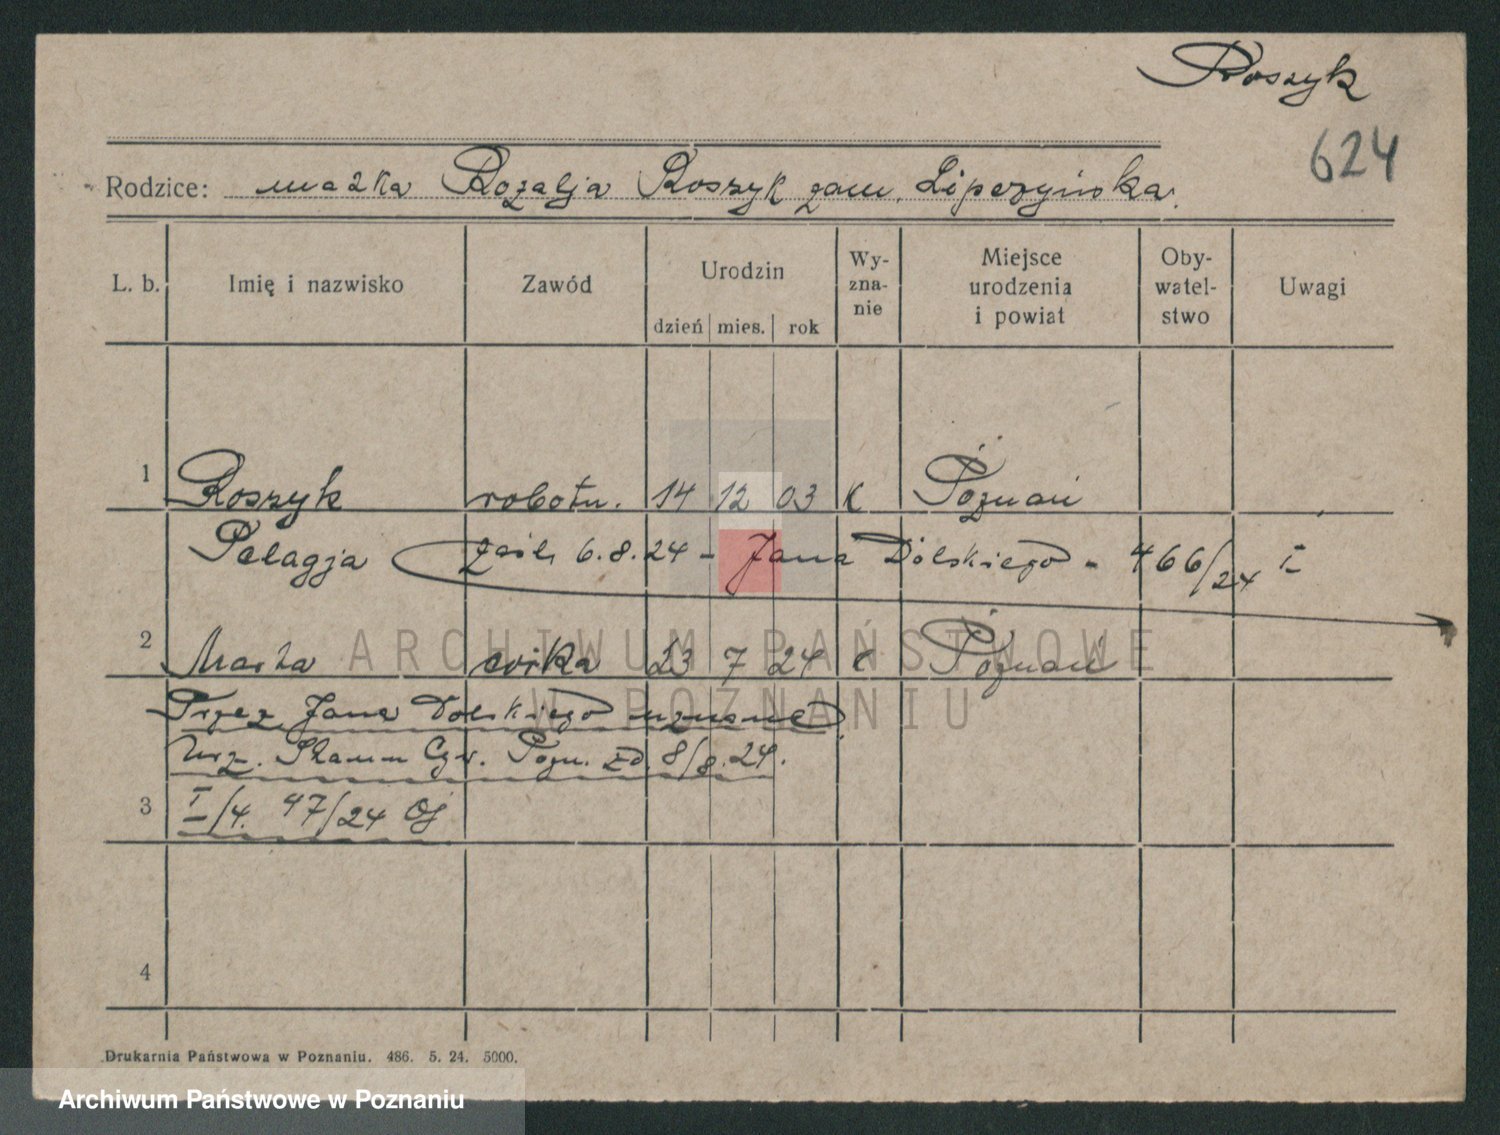 Roszyk
624
Rodzice: matka Rozalja Roszyk zam. Lipczyńska.
L. b. Imię i nazwisko Zawód Urodzin dzień mies. rok Wy-zna-nie Miejsce urodzenia i powiat Oby-watel-stwo Uwagi
1 Roszyk robotn. 14 12 03 K Poznań
Pelagja zaśl. 6.8.24 - Jana Dolskiego - 466/24 I
2 Marta córka 23 7 24 K Poznań
Przez Jana Dolskiego uznane
Urz. Stanu Cyw. Pozn. zd. 8/8.24.
3 I/4. 47/24
4
ARCHIWUM PAŃSTWOWE
W POZNANIU
Drukarnia Państwowa w Poznaniu. 486. 5. 24. 5000.
Archiwum Państwowe w Poznaniu